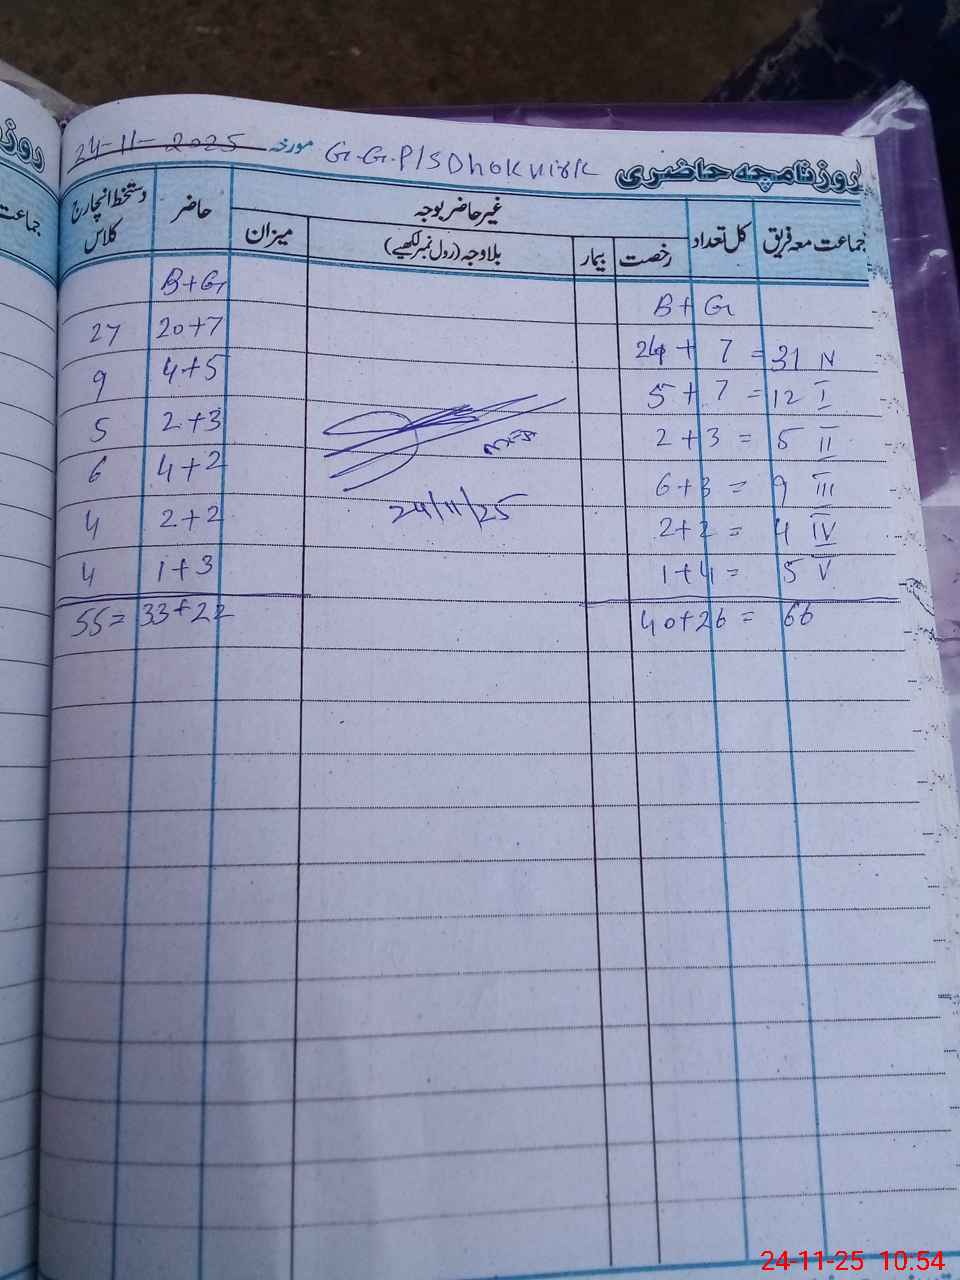 روزنامچہ حاضری G.G.P/S Dhok Virk مورخہ 24-11-2025
جماعت معہ فریق کل تعداد غیر حاضر بوجہ حاضر دستخط انچارج کلاس
رخصت بیمار بلاوجہ (رول نمبر لکھیے) میزان
B+G B+G
27 20+7 24 + 7 = 31 N
9 4+5 5 + 7 = 12 I
5 2+3 2 + 3 = 5 II
6 4+2 6+3 = 9 III
4 2+2 2+2 = 4 IV
4 1+3 1+4 = 5 V
24/11/25
55 = 33+22 40+26 = 66
روز
جماعت
24-11-25 10:54